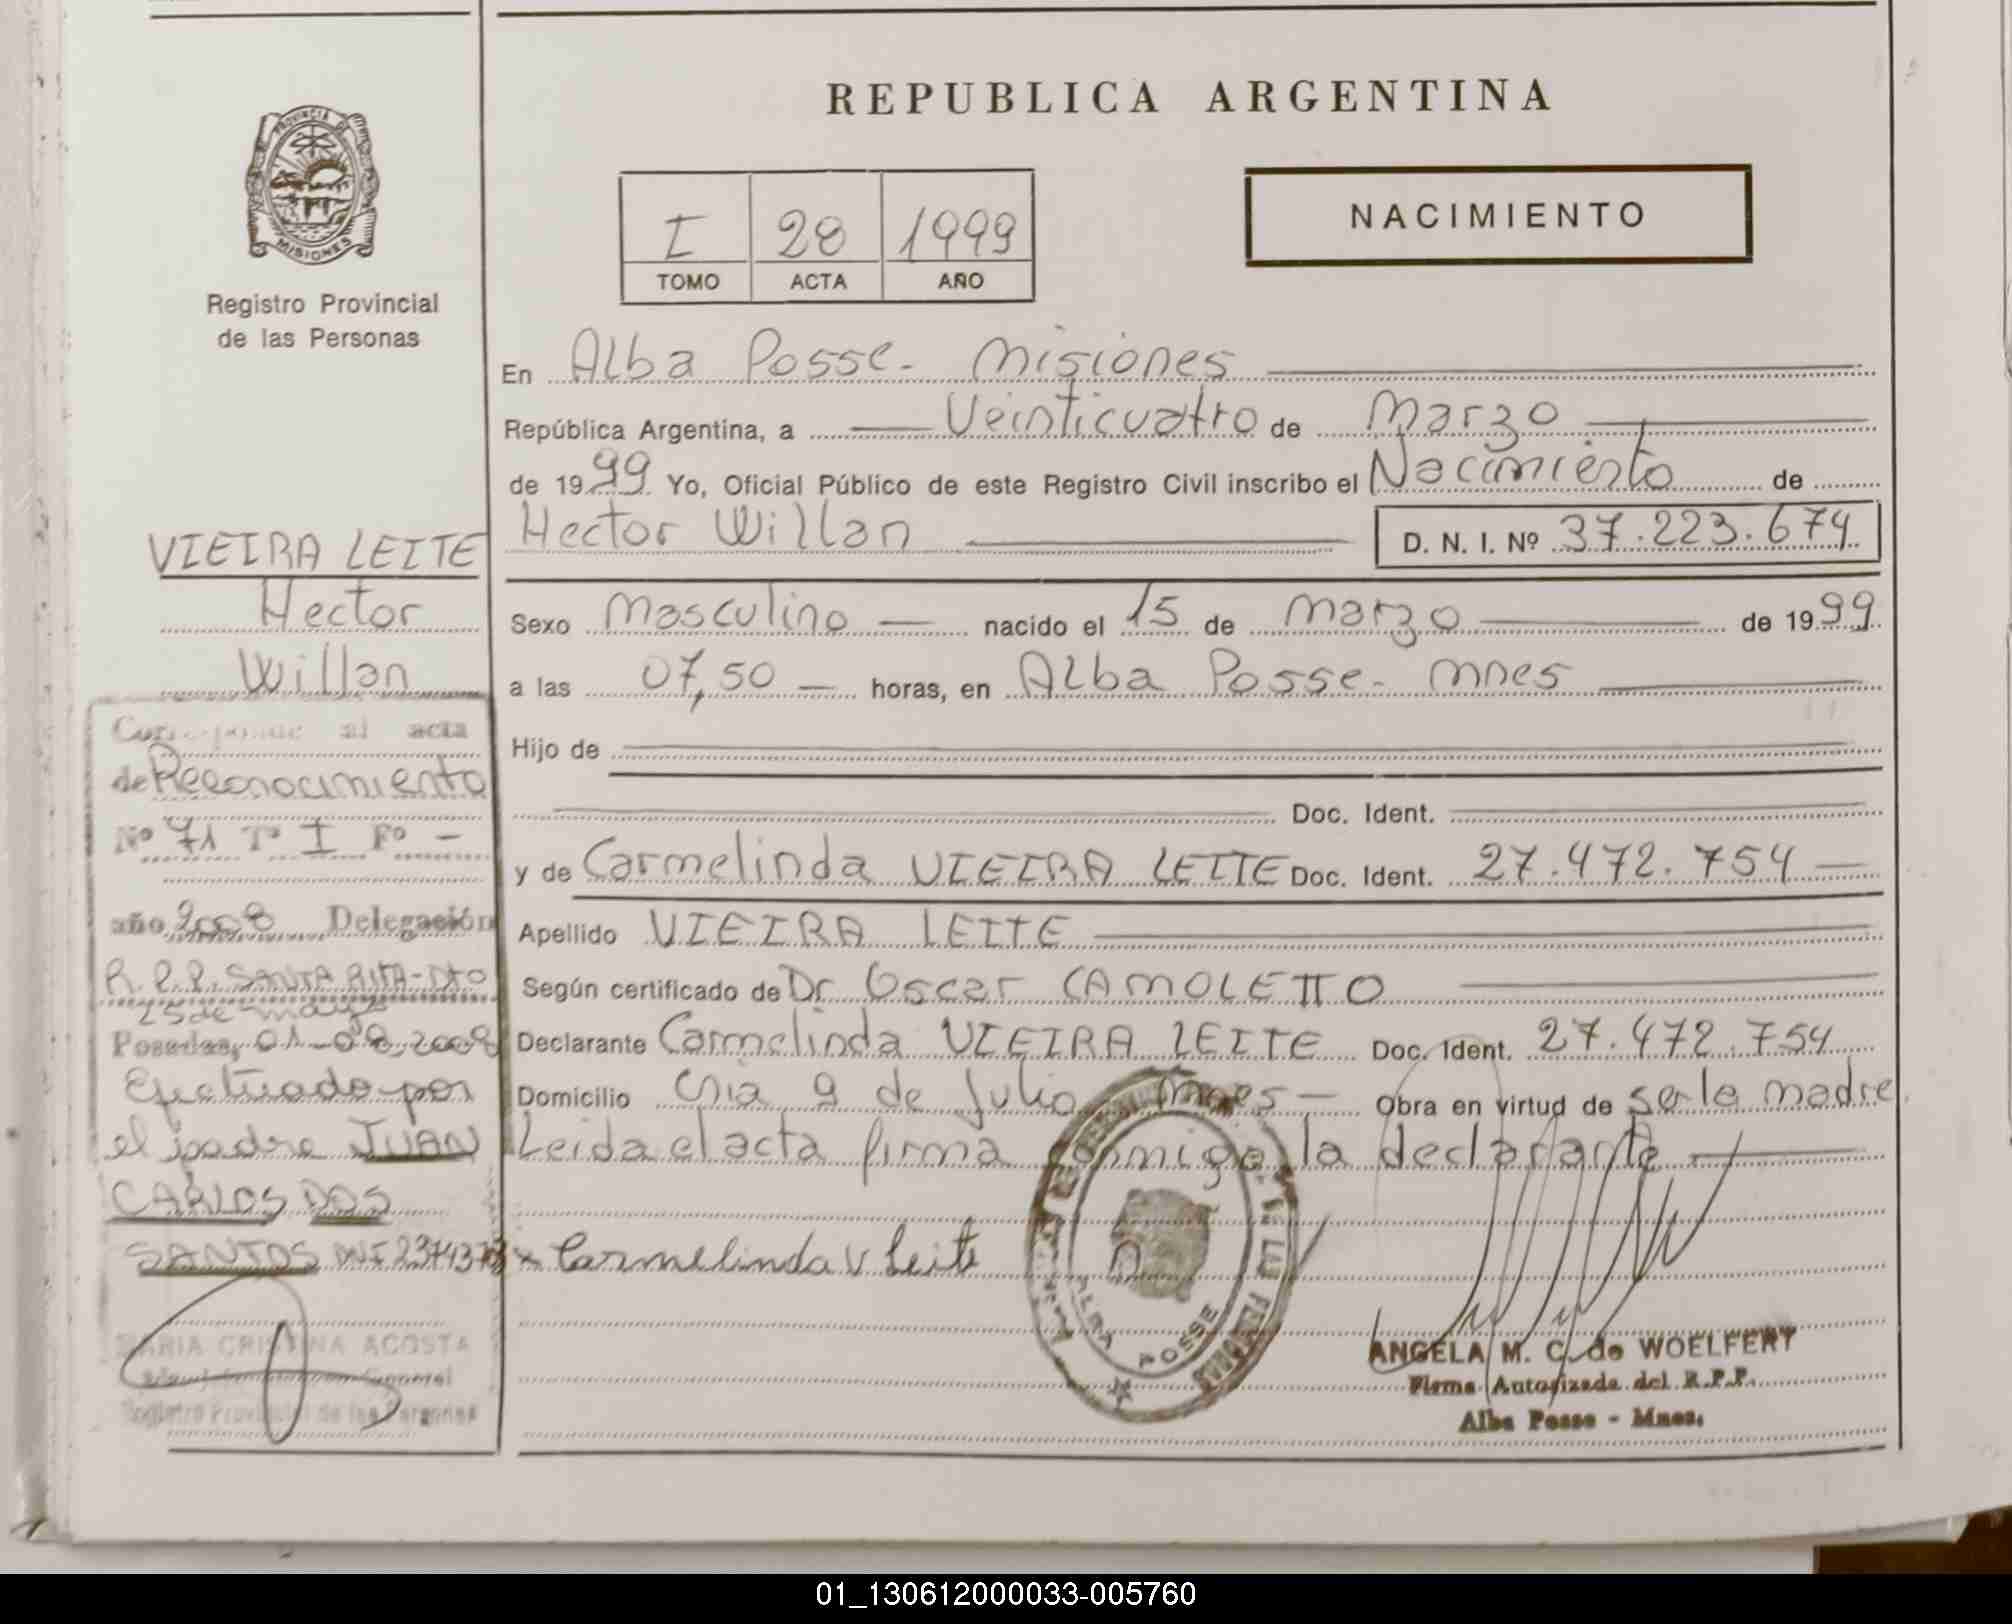 REPUBLICA ARGENTINA
PROVINCIA DE MISIONES
Registro Provincial
de las Personas
I 28 1999
TOMO ACTA AÑO
NACIMIENTO
En Alba Posse - Misiones
República Argentina, a Veinticuatro de Marzo
de 1999 Yo, Oficial Público de este Registro Civil inscribo el Nacimiento de
Hector Willan D. N. I. Nº 37.223.674
Sexo Masculino nacido el 15 de Marzo de 1999
a las 07,50 horas, en Alba Posse - Mnes
Hijo de
Doc. Ident.
y de Carmelinda VIEIRA LEITE Doc. Ident. 27.472.754
Apellido VIEIRA LEITE
Según certificado de Dr Oscar CAMOLETTO
Declarante Carmelinda VIEIRA LEITE Doc. Ident. 27.472.754
Domicilio Cnia 9 de Julio Mnes Obra en virtud de ser la madre.
Leida el acta firma conmigo la declarante
x Carmelinda V Leite
ALBA POSSE
ANGELA M. C. de WOELFERT
Firma Autorizada del R.P.P.
Alba Posse - Mnes.
VIEIRA LEITE
Hector
Willan
Corresponde al acta
de Reconocimiento
Nº 71 Tº I Fº -
año 2008 Delegación
R.P.P. SANTA RITA - Dto
25 de mayo
Posadas, 01-08-2008
Efectuado por
el padre JUAN
CARLOS DOS
SANTOS DNI
MARIA CRISTINA ACOSTA
General
Registro Provincial de las Personas
01_130612000033-005760